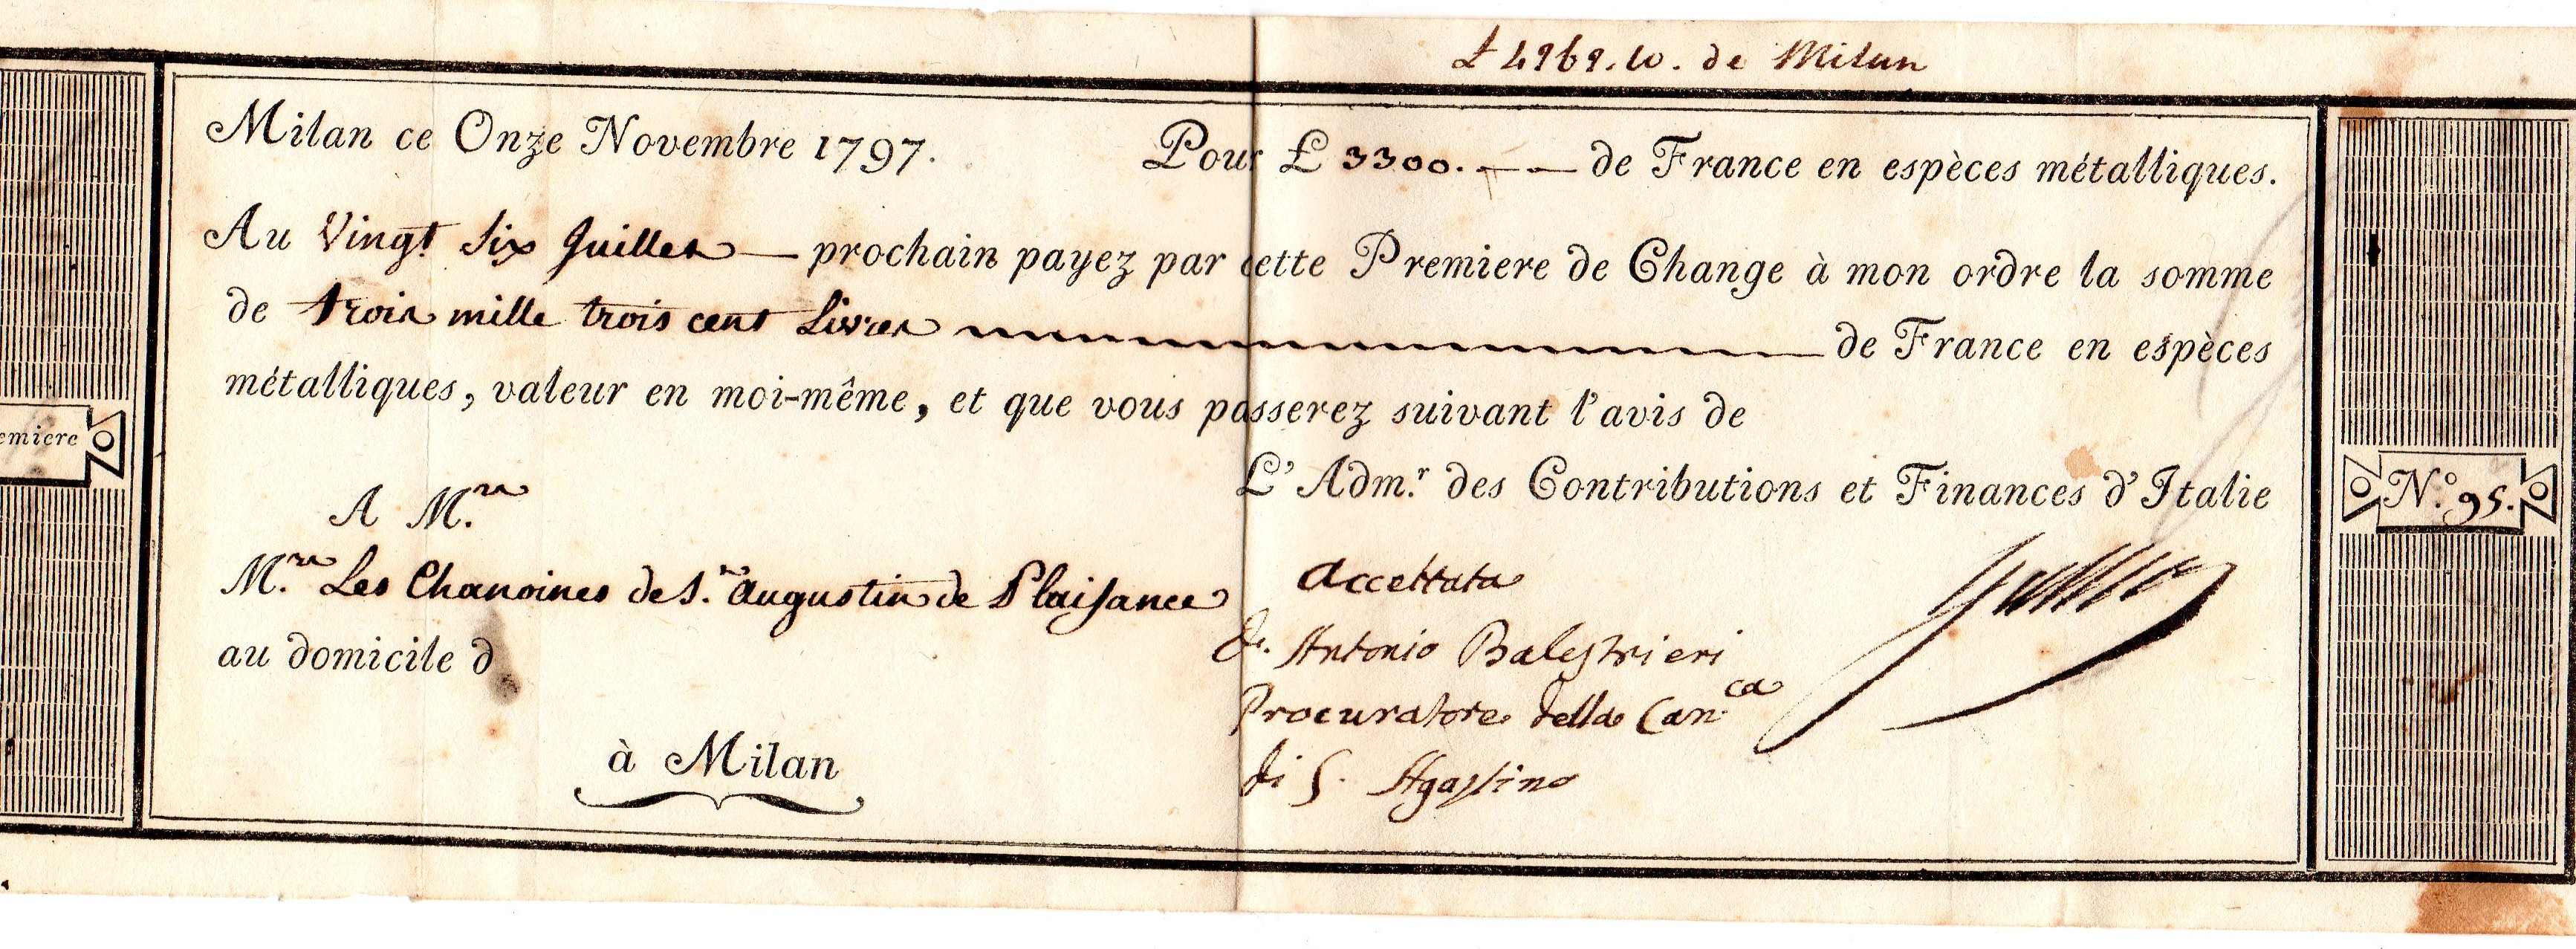 £ 4969.10. de Milan
Milan ce Onze Novembre 1797. Pour £ 3300. — — de France en espèces métalliques.
Au Vingt Six Juillet — prochain payez par cette Premiere de Change à mon ordre la somme
de trois mille trois cent Livres de France en espèces
métalliques, valeur en moi-même, et que vous passerez suivant l'avis de
L'Adm.r des Contributions et Finances d'Italie
emiere
N.o 95.
A M.rs
M.rs Les Chanoines de S.t Augustin de Plaisance
au domicile d
à Milan
Accettata
Antonio Balestrieri
Procuratore della Can.ca
di S. Agostino